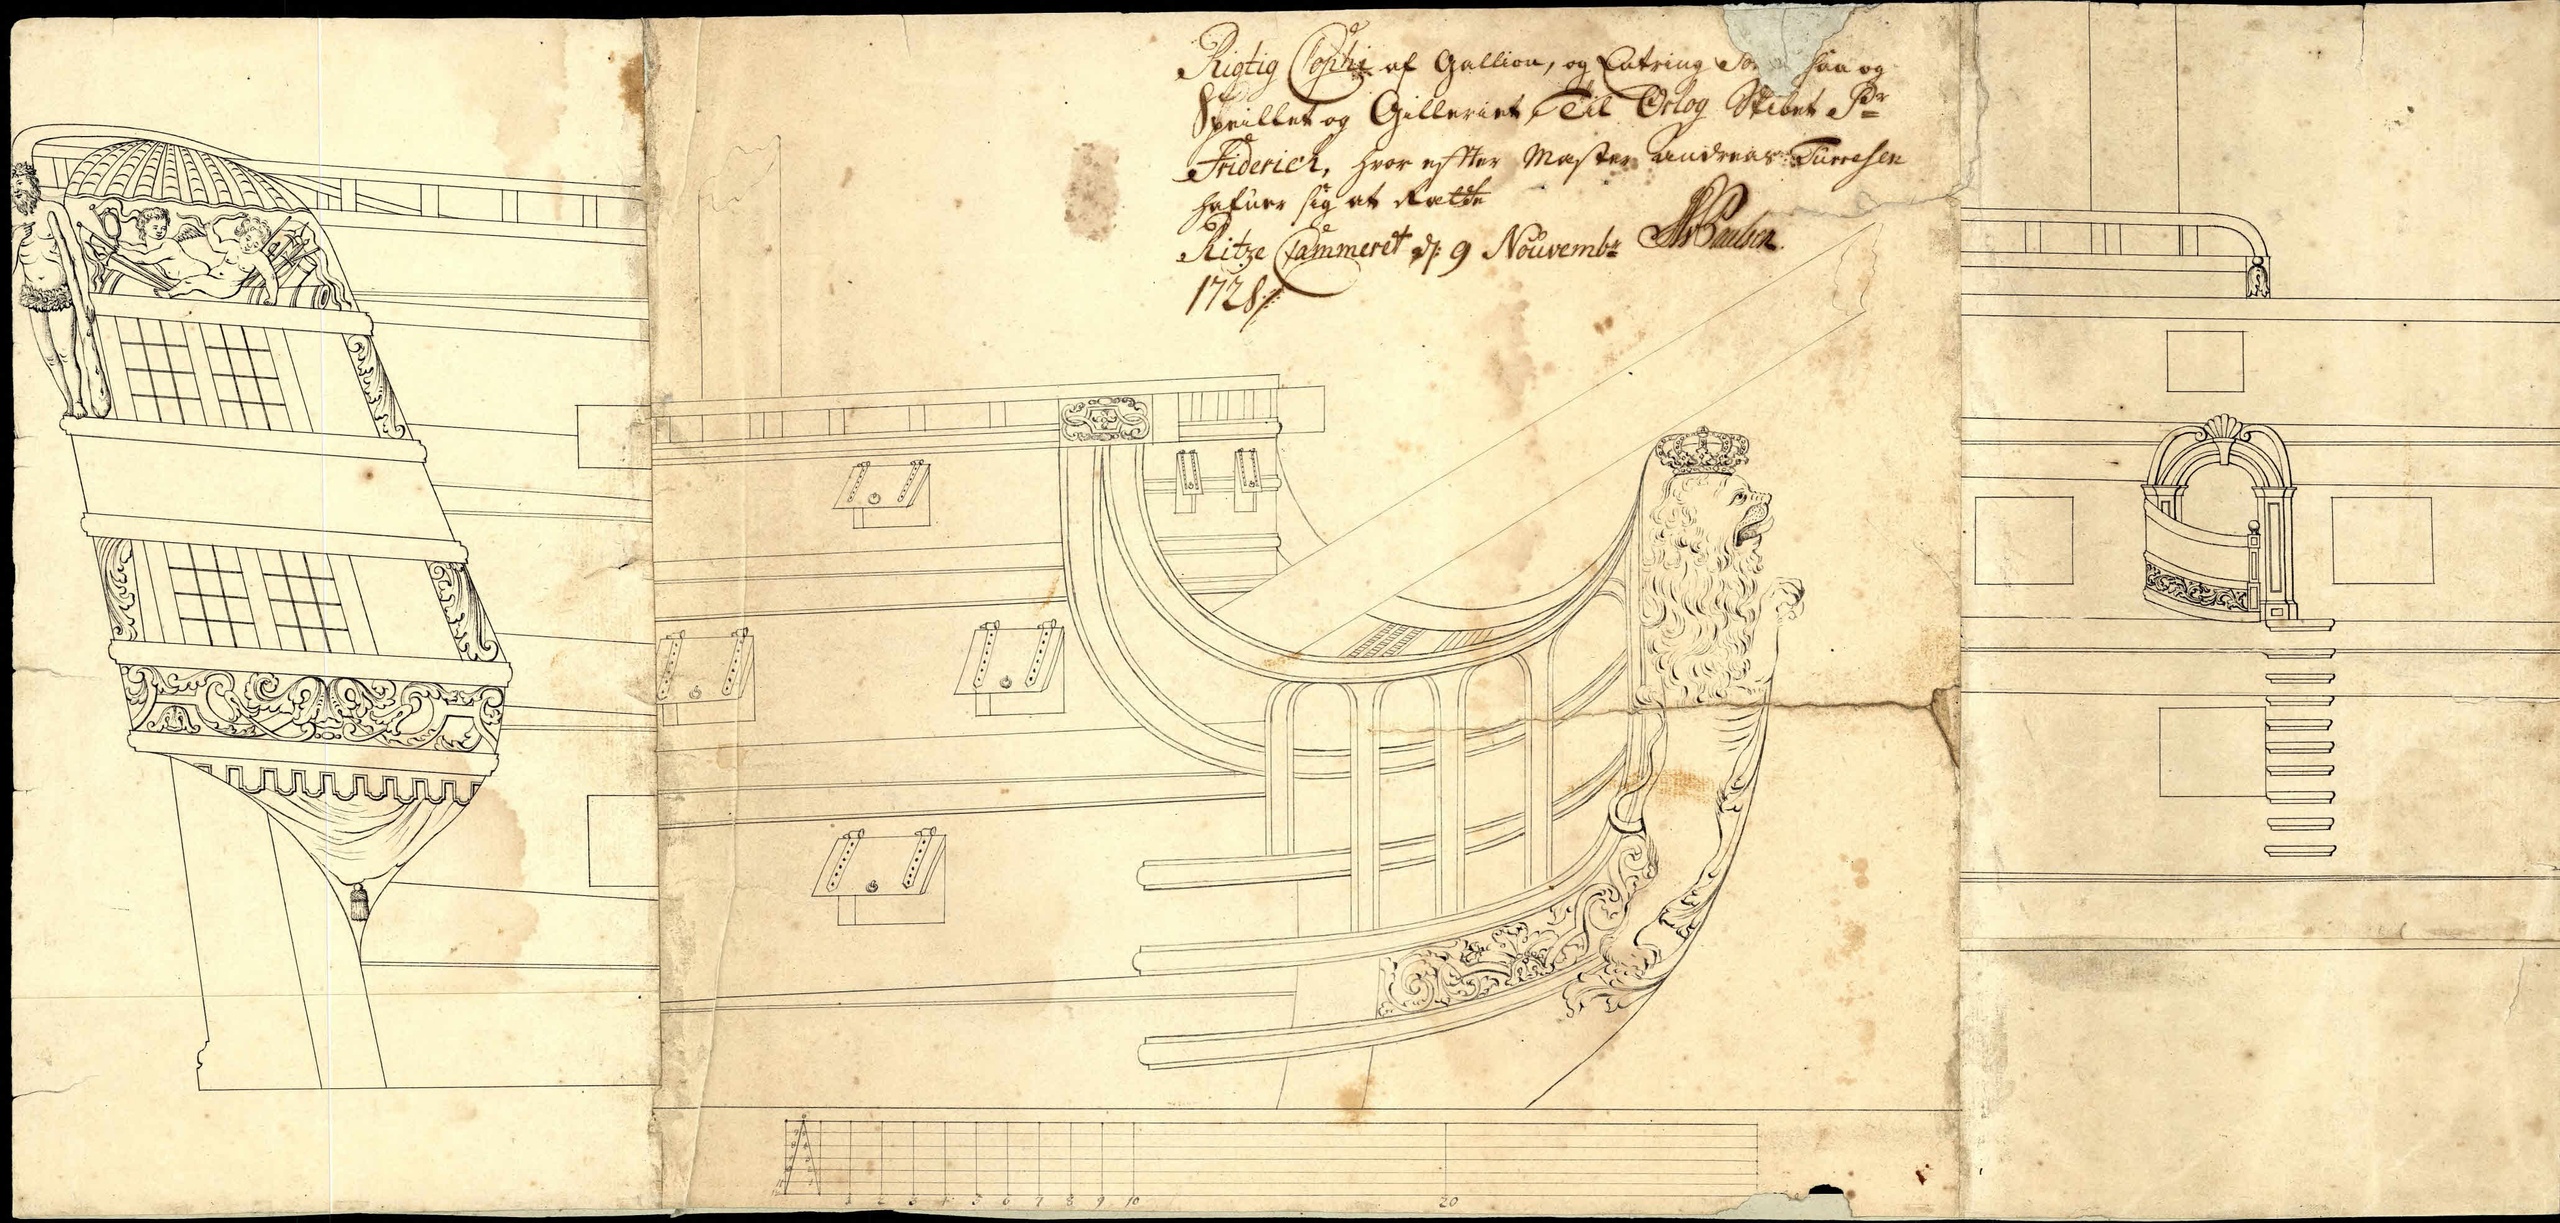 Rigtig Cophi af Gallion, og Latring saa og
Speillet og Gilleriet, Til Orlog Skibet Pr
Friderich, hvor effter Master Andreas Turresen
hafuer sig at Rætte
Ritze Cammeret d: 9 Nouvembr
1728
1 2 3 4 5 6 7 8 9 10 20